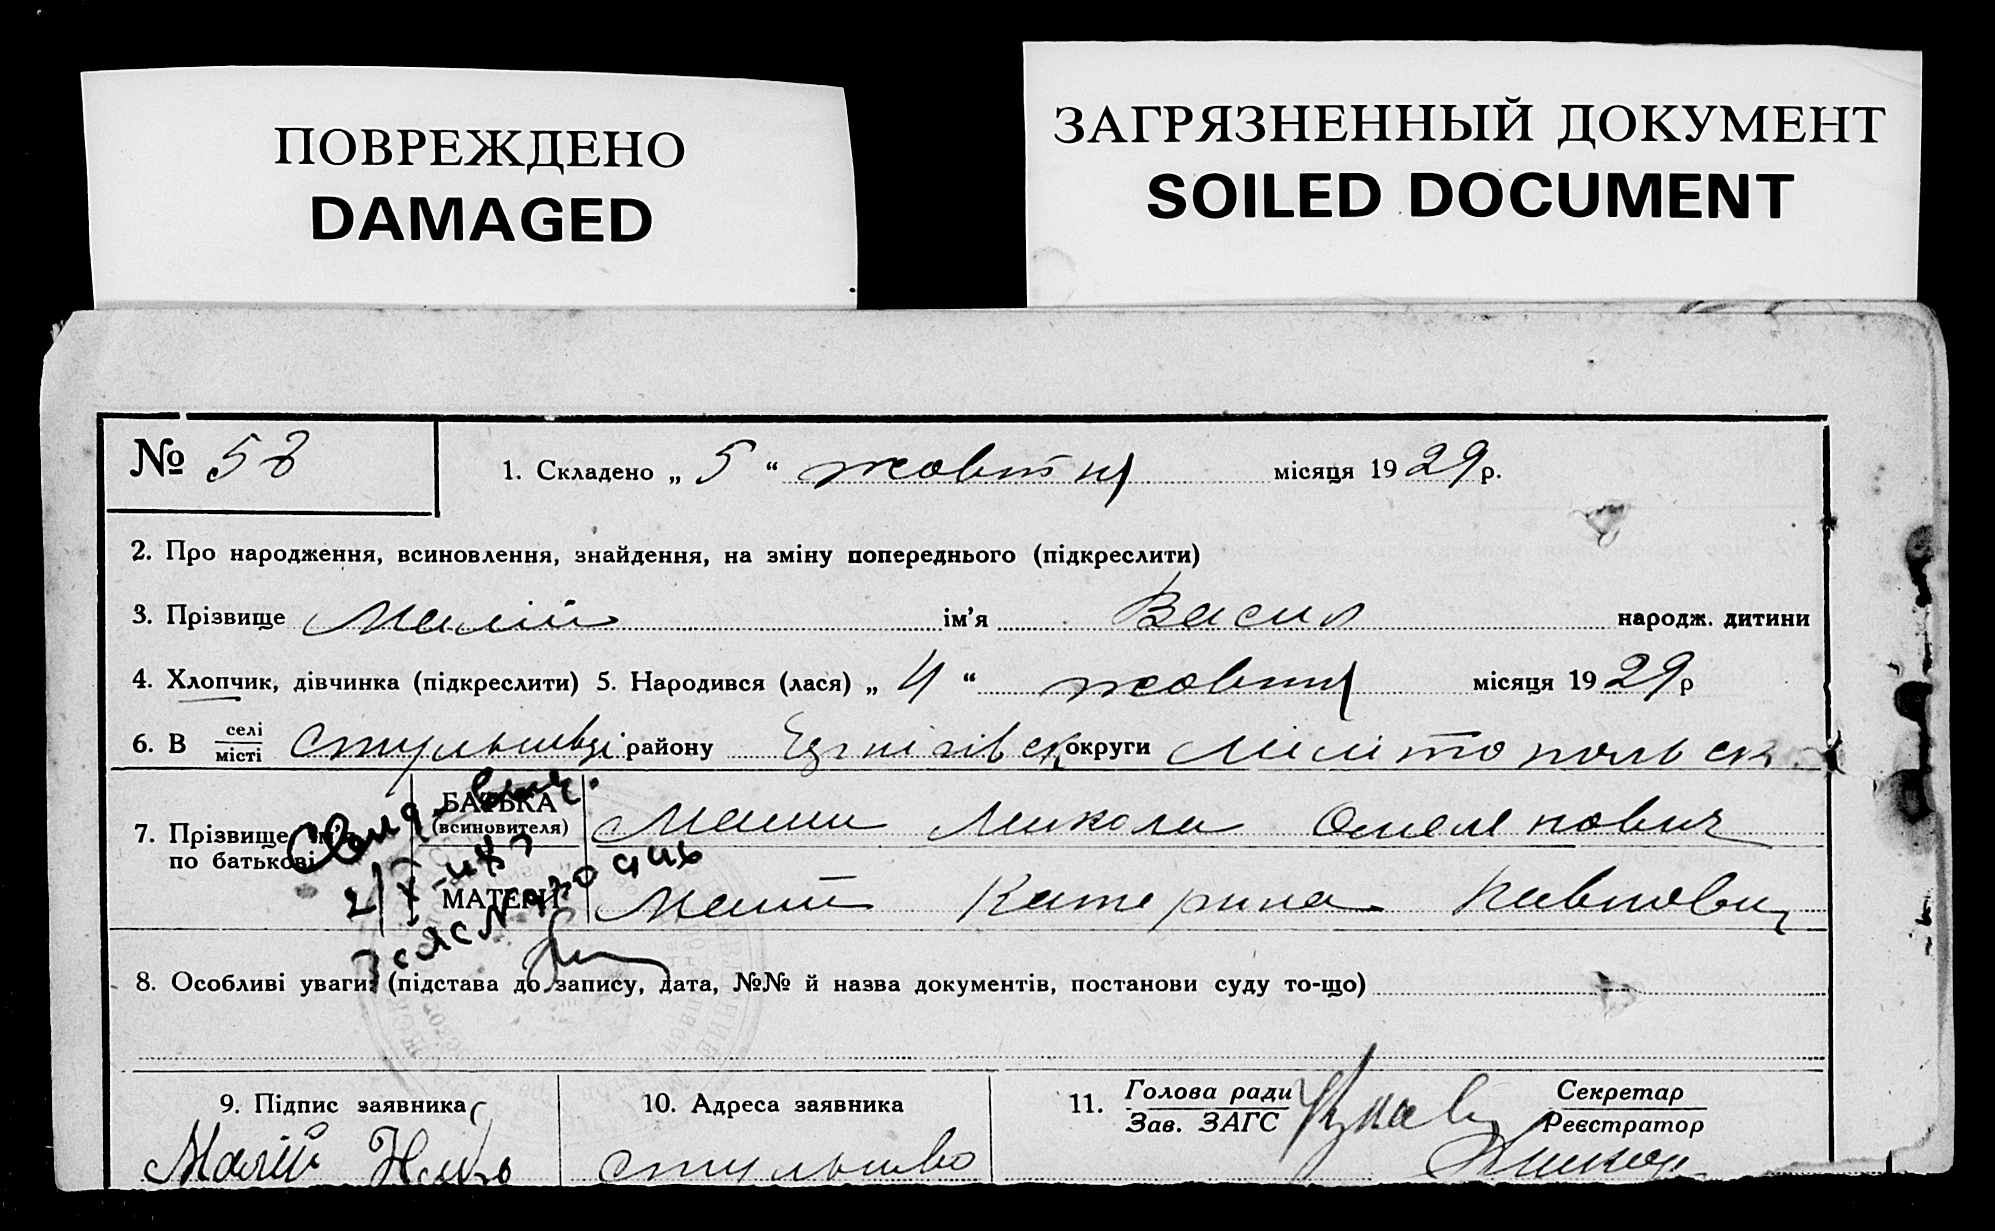 ПОВРЕЖДЕНО
DAMAGED
ЗАГРЯЗНЕННЫЙ ДОКУМЕНТ
SOILED DOCUMENT
№ 58
1. Складено „ 5 “ жовтня місяця 1929 р.
2. Про народження, всиновлення, знайдення, на зміну попереднього (підкреслити)
3. Прізвище Малій ім’я Васил народж. дитини
4. Хлопчик, дівчинка (підкреслити) 5. Народився (лася) „ 4 “ жовтня місяця 1929 р
6. В селі місті району округи Мелітопольськ
7. Прізвище
по батькові
БАТЬКА
(всиновителя)
Малий Микола Омелянович
МАТЕРИ
Малий Катерина
8. Особливі уваги: (підстава до запису, дата, №№ й назва документів, постанови суду то-що)
9. Підпис заявника
Малій
10. Адреса заявника
11. Голова ради
Зав. ЗАГС
Секретар
Реєстратор